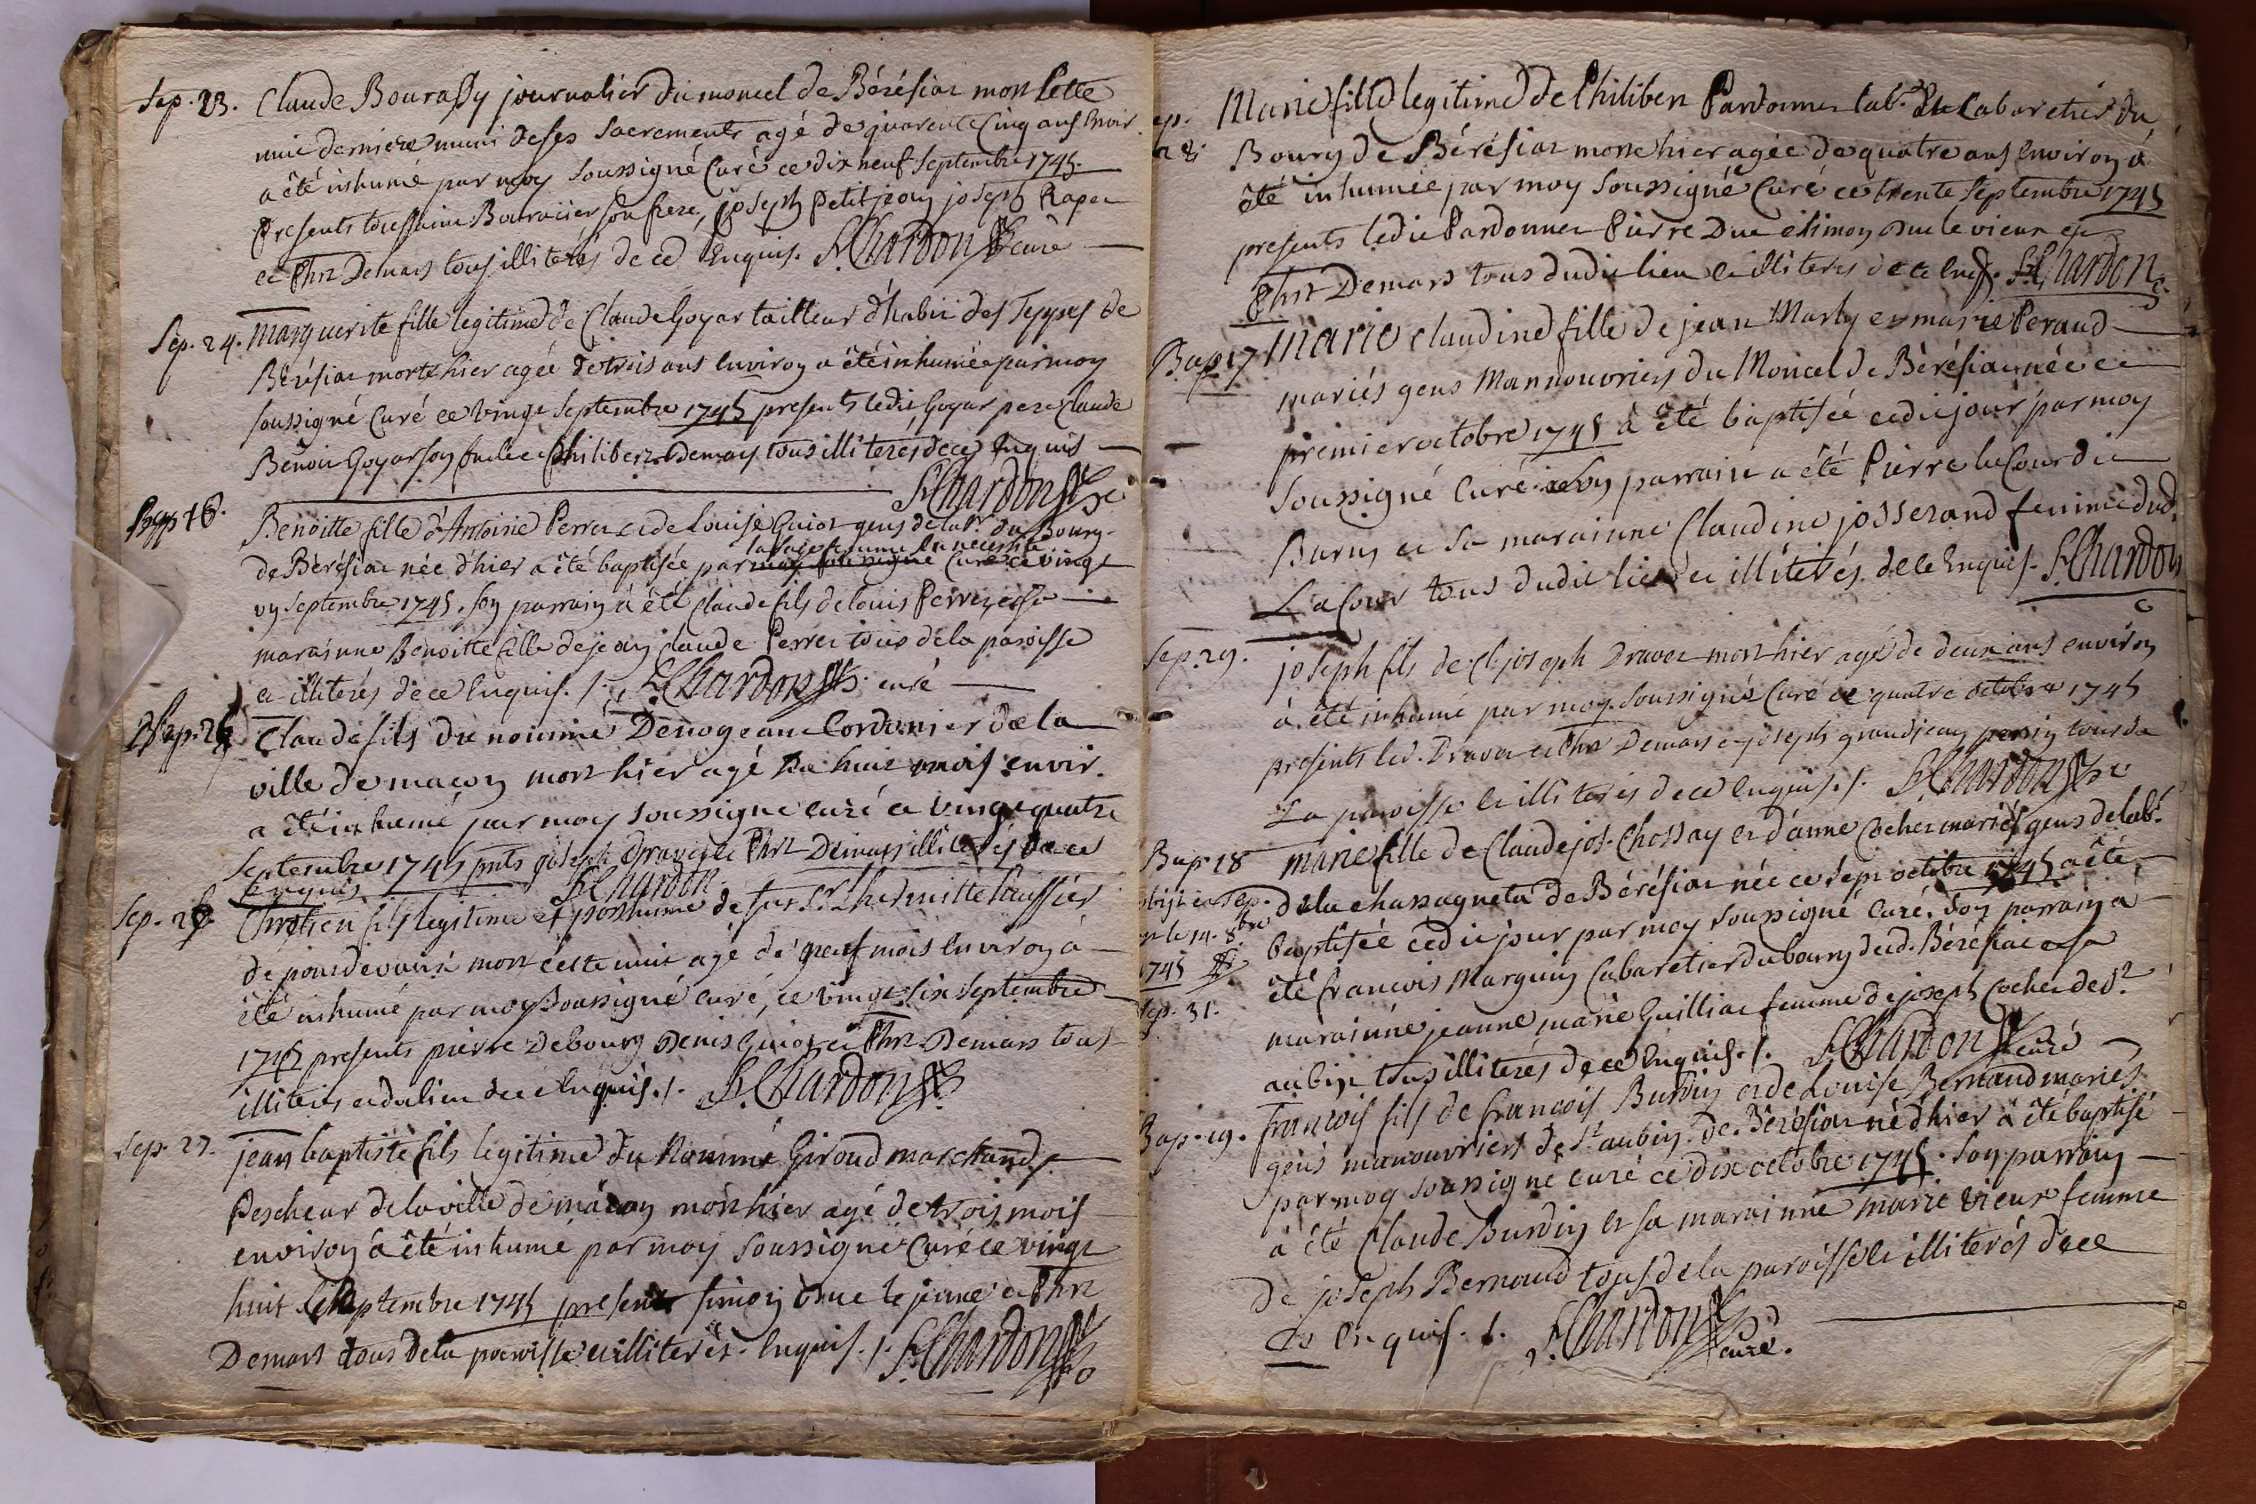 Sep. 23. Claude Bourassy journalier du moncel de Bérésiat mort cette
nuit derniere muni de ses sacrements agé de quarente cinq ans envir.
a été inhumé par moy soussigné curé ce dix neuf septembre 1745.
presents toussaint son frere, joseph petitjean joseph
et Phrt Demars tous illiterés de ce Enquis. Chardon curé
Sep. 24. Marguerite fille legitime de Claude Goyat tailleur d'habit des Teppes de
Bérésiat morte hier agée de trois ans environ a été inhumée par moy
soussigné curé ce vingt septembre 1745 presents ledit Goyat pere Claude
Benoit Goyat son et Philibert Demars tous illiterés de ce Enquis
Chardon
Bap 16. Benoitte fille d'Antoine Perret et de Louise Guiot gens de labr du Bourg
la sage femme en necessité
de Bérésiat née d'hier a été baptisée par moy soussigné curé ce vingt
un septembre 1745. son parrain a été Claude fils de Louis Perret et sa
marainne Benoitte fille de jean claude Perret tous de la paroisse
et illiterés de ce Enquis. /. Chardon curé
Sep. 25 Claude fils du nommé Denogeant Cordonier de la
ville de macon mort hier agé de huit mois envir.
a été inhumé par moy soussigné curé ce vingt quatre
Septembre 1745 pnts joseph Dravet et Phrt Demars illiterés de ce
Enquis Chardon
Sep. 26 fils legitime et posthume de feu Sr Lhermitte huissier
de mort cette nuit agé de neuf mois environ a
été inhumé par moy soussigné curé, ce vingt six septembre
1745 presents pierre Debourg Denis Guiot et Phrt Demars tous
illiterés et dulieu de ce Enquis. /. Chardon
Sep. 27. jean baptiste fils legitime du Nommé Giroud marchand
Pescheur de la ville de mâcon mort hier agé de trois mois
environ a été inhumé par moy soussigné Curé ce vingt
huit septembre 1745 presents simon Duc le jeune et Phrt
Demars tous de la paroisse et illiterés. Enquis. /. Chardon
ep. Marie fille legitime de Philibert Pardonnet labr. et Cabaretier du
28. Bourg de Bérésiat morte hier agée de quatre ans environ a
été inhumée par moy soussigné Curé ce trente septembre 1745
presents ledit Pardonnet Pierre Duc et simon Duc le vieux et
Phrt Demars tous dudit lieu et illiterés de ce Enq. Chardon
Bap 17 Marie claudine fille de jean Marly et marie Peraud
mariés gens Mannouvriers du Moncel de Bérésiat née ce
premier octobre 1745 a été baptisée cedit jour par moy
soussigné curé. son parrain a été Pierre Lacour dit
et sa marainne Claudine josserand femme dud.
Lacour tous dudit lieu et illiterés de ce Enquis. Chardon
Sep. 29. joseph fils de joseph Dravet mort hier agé de deux ans environ
a été inhumé par moy soussigné Curé ce quatre octobre 1745
presents led. Dravet et Phrt Demars et joseph grandjean tous de
La paroisse et illiterés de ce Enquis. /. Chardon
Bap 18 Marie fille de Claude jos. Chossay et d'anne Cochet mariés gens de lab.
de la chassagneta de Bérésiat née ce sept octobre 1745 a été
baptisée cedit jour par moy soussigné Curé. son parrain a
1745 été francois Marguin Cabaretier du bourg dud. Bérésiat et sa
Sep. 31. marainne jeanne marie Guilliat femme de joseph Cochet de St
aubin tous illiterés de ce Enquis. /. Chardon curé
Bap. 19. francois fils de francois Burdin et de Louise Bernaud mariés
gens manouvriers de St aubin de Bérésiat né d'hier a été baptisé
par moy soussigné curé ce dix octobre 1745. son parrain
a été Claude Burdin et sa marainne marie vieux femme
de joseph Bernaud tous de la paroisse et illiterés de ce
Enquis. /. Chardon curé.